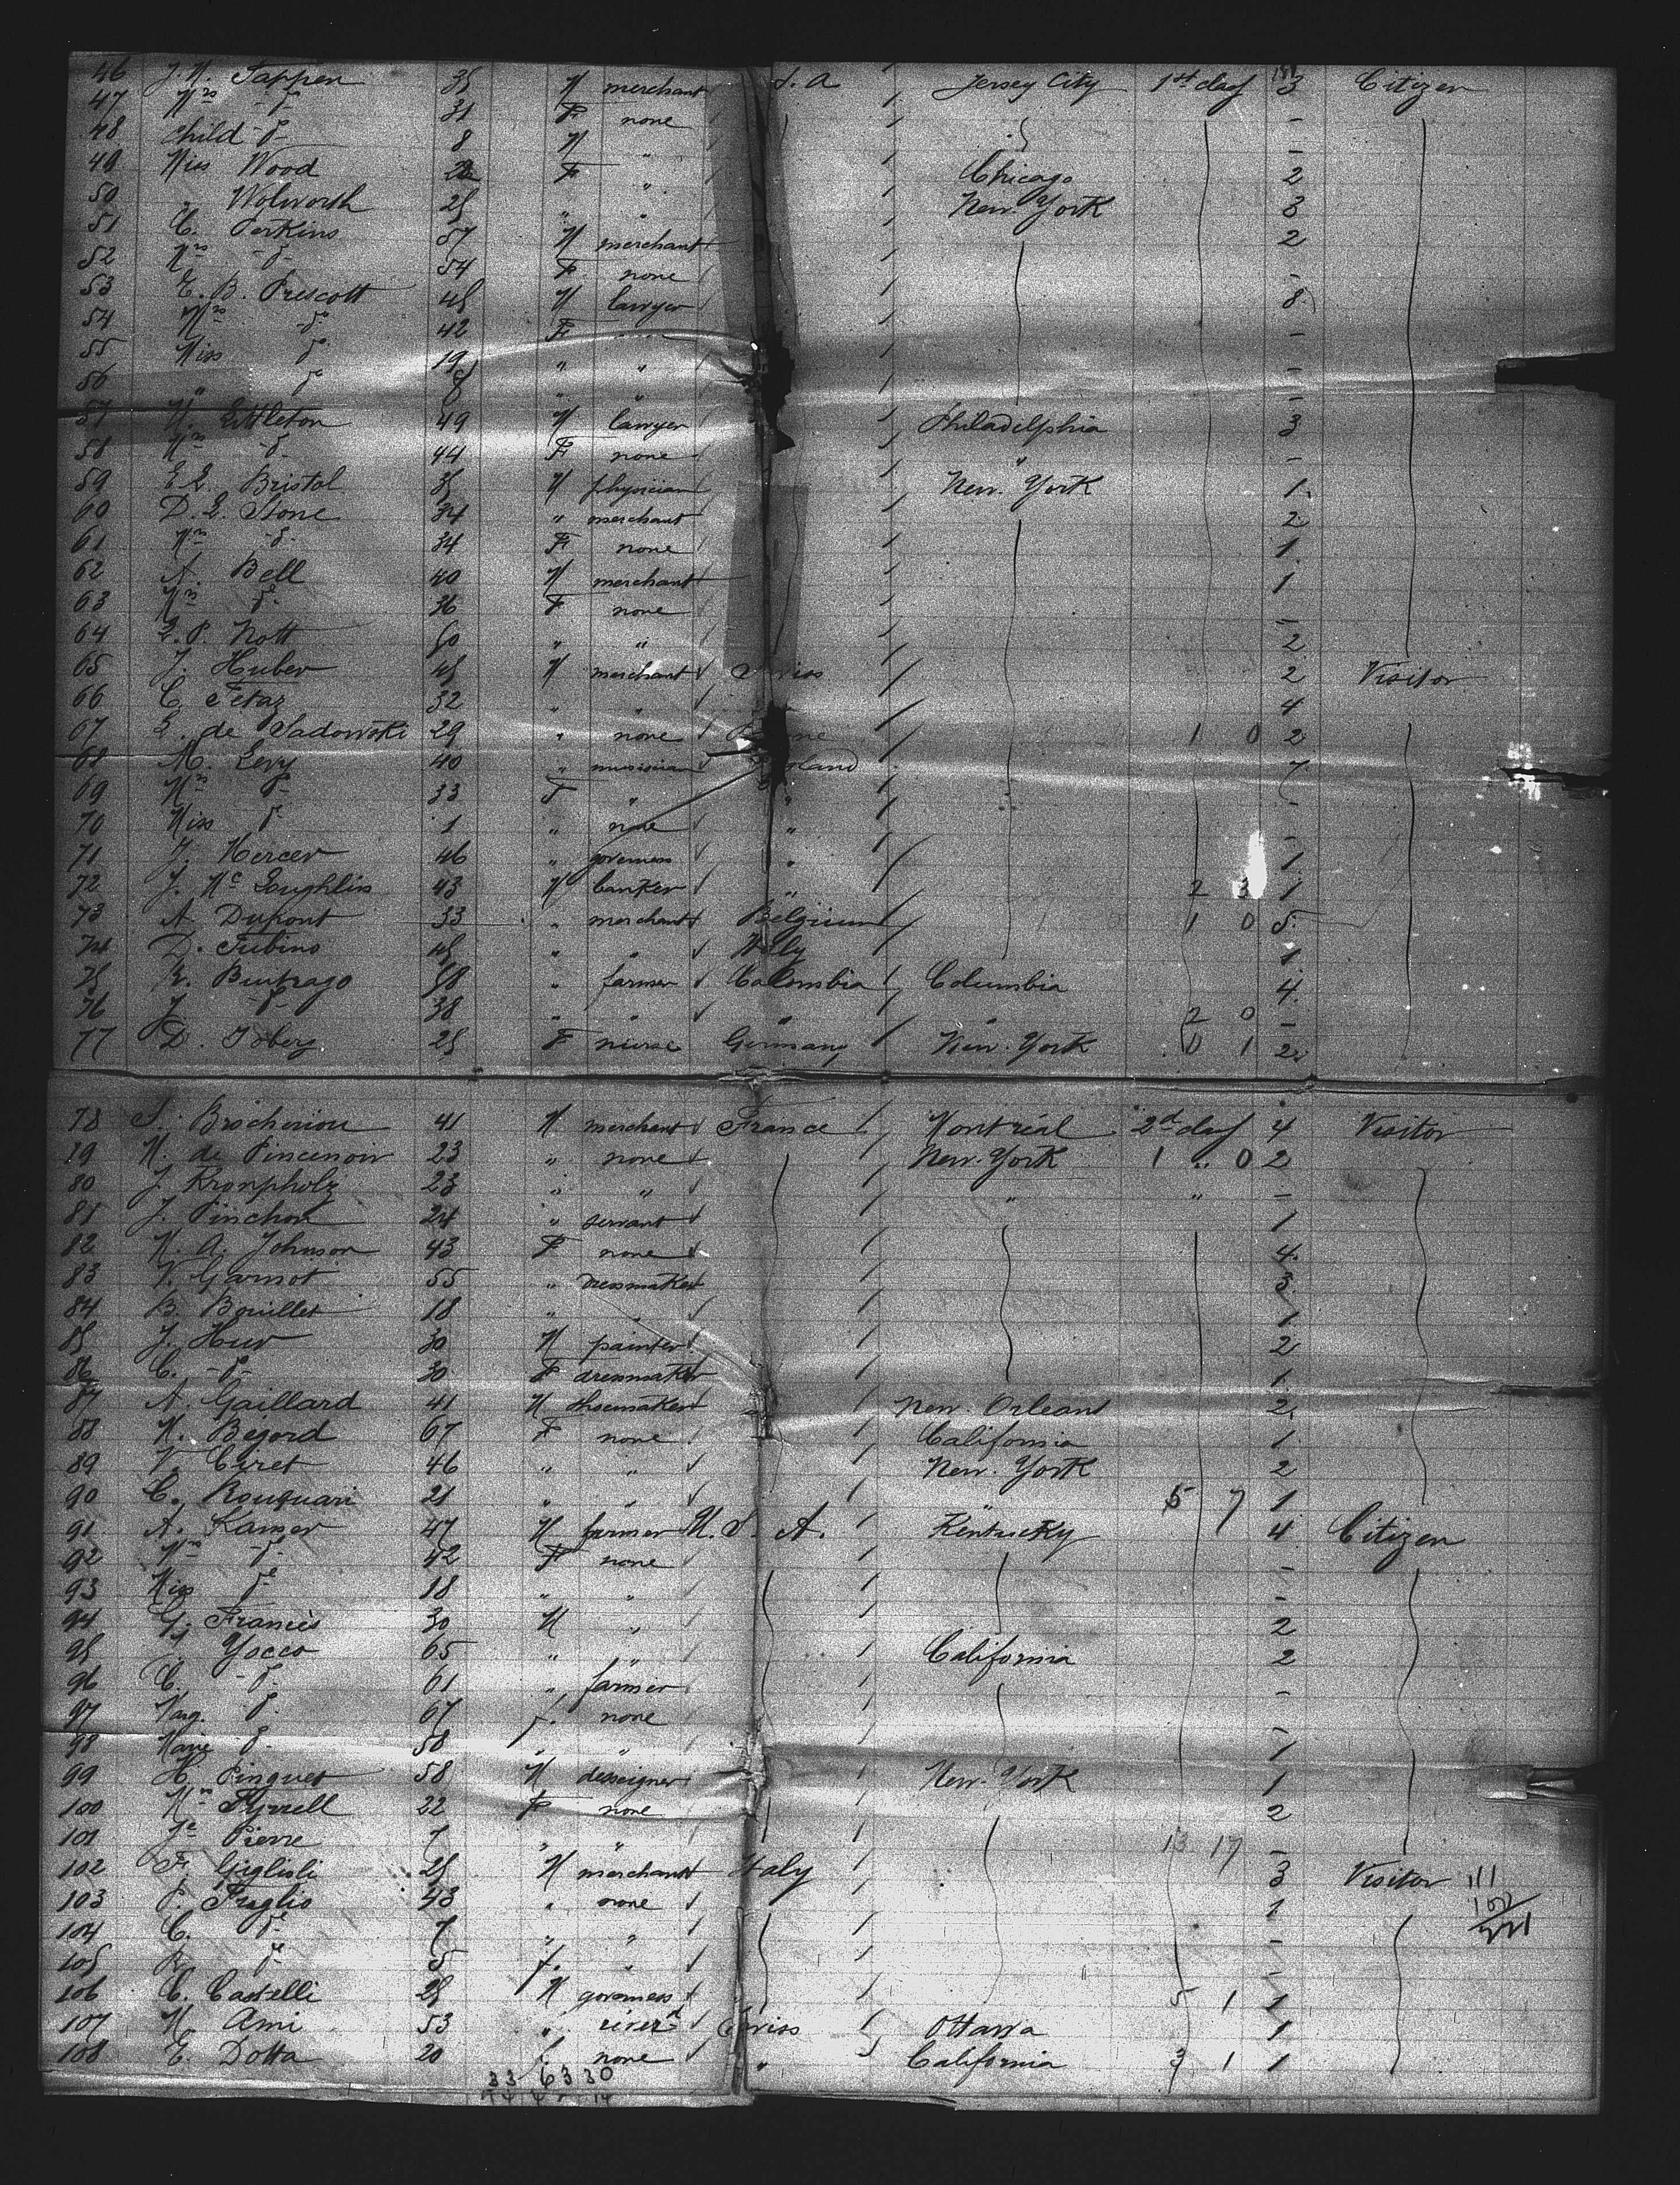 46 J. H. Tappen 35 M merchant S. A Jersey City 1st day 3 Citizen
47 Mrs do 31 F none -
48 child do 8 M " -
49 Miss Wood 22 F " Chicago 2
50 " Wolworth 25 " " New-York 3
51 C. Perkins 57 M merchant 2
52 Mrs do 54 F none -
53 E. B. Prescott 45 M lawyer 8
54 Mrs do 42 F -
55 Miss do 19 " " -
56 " do " " -
57 H. Littleton 49 M lawyer Philadelphia 3
58 Mrs do 44 F none " -
59 E. L. Bristol 35 M physician New-York 1
60 D. L. Stone 34 " merchant 2
61 Mrs do 34 F none 1
62 A. Bell 40 M merchant 1
63 Mrs do 36 F none -
64 L. P. Nott 50 " " 2
65 J. Huber 45 M merchant Swiss 2 Visitor
66 C. Fetaz 32 " " 4
67 L. de Sadowski 29 " none 1 0 2
68 M. Levy 40 " musician 7
69 Mrs do 33 F " " -
70 Miss do 1 " none " -
71 J. Mercer 46 " governess " 1
72 J. Mc Loughlin 43 M banker " 2 3 1
73 A. Dupont 33 " merchant Belgium 1 0 5
74 D. Tubino 45 " " Italy 1
75 Buitrago 58 " farmer Colombia Columbia 4
76 J. do 38 " " " " 2 0 -
77 D. Idberg 25 F nurse Germany New-York 0 1 2
78 S. Brocheriou 41 M merchant France Montréal 2d day 4 Visitor
79 M. de Pincenoir 23 " none New-York 1 " 0 2
80 J. Kronpholz 23 " " " " -
81 J. Pinchon 24 " servant 1
82 M. A. Johnson 43 F none 4
83 V. Garnot 55 " dressmaker 3
84 B. Bouillet 18 " " 1
85 J. Hur 30 M painter 2
86 C. do 30 F dressmaker 1
87 A. Gaillard 41 M shoemaker New-Orleans 2
88 M. Bégord 67 F none California 1
89 V. Ceret 46 " " New-York 2
90 C. Rouquari 21 " " " 5 7 1
91 A. Kanser 47 M farmer U. S. A. Kentucky 4 Citizen
92 Mrs do 42 F none -
93 Miss do 18 " " -
94 G. Francès 30 M " 2
95 Yocco 65 " " California 2
96 C. do 61 " farmer -
97 Marg. do 67 F. none -
98 Marie do 58 " " 1
99 H. Pinguet 58 M desseigner New-York 1
100 Mrs Tyrrell 22 F none 2
101 Je Pierre 7 " " 13 17 -
102 F. Giglioli 25 M merchant Italy 3 Visitor 111
103 P. Traglio 43 " none 1
104 C. do 7 " " -
105 R. do 5 f. " -
106 C. Castelli 25 M governess 5 1 1
107 M. Ami 53 " reverd Swiss Ottawa 1
108 E. Dotta 20 " none " California 3 1 1
33 63 30